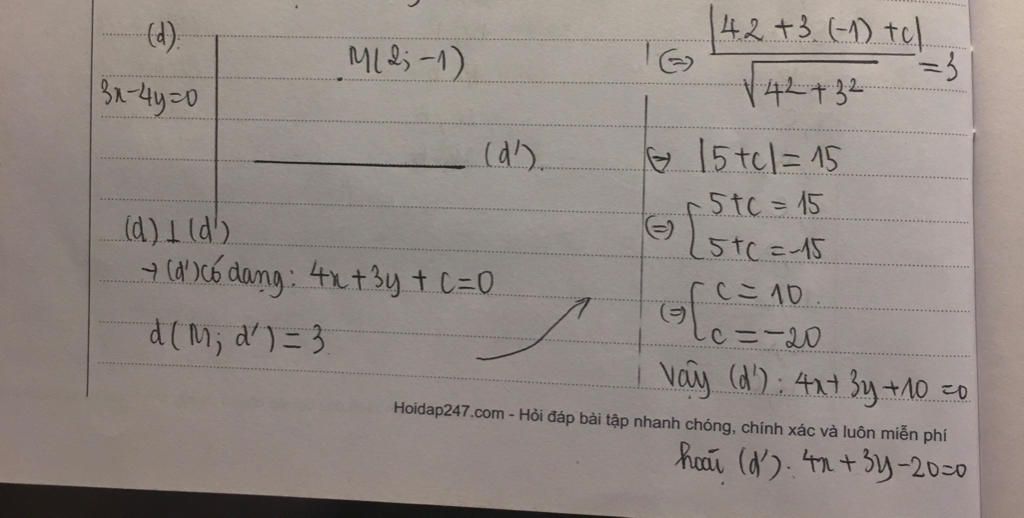 (d)
3x-4y=0
M(2; -1)
(d').
(d) ⊥ (d')
→ (d') có dạng: 4x+3y+c=0
d(M; d') = 3
(=) |4.2 + 3.(-1) + c| / √(4²+3²) = 3
(=) |5+c| = 15
(=) [ 5+c = 15
5+c = -15
(=) [ c = 10.
c = -20
Vậy (d'): 4x+3y+10=0
Hoidap247.com - Hỏi đáp bài tập nhanh chóng, chính xác và luôn miễn phí
hoặc (d'). 4x+3y-20=0